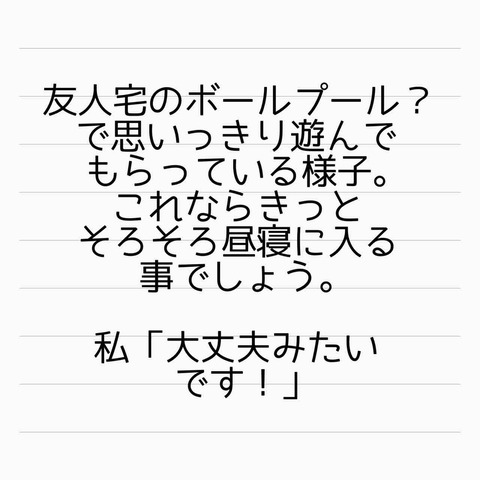 友人宅のボールプール？
で思いっきり遊んで
もらっている様子。
これならきっと
そろそろ昼寝に入る
事でしょう。
私「大丈夫みたい
です！」